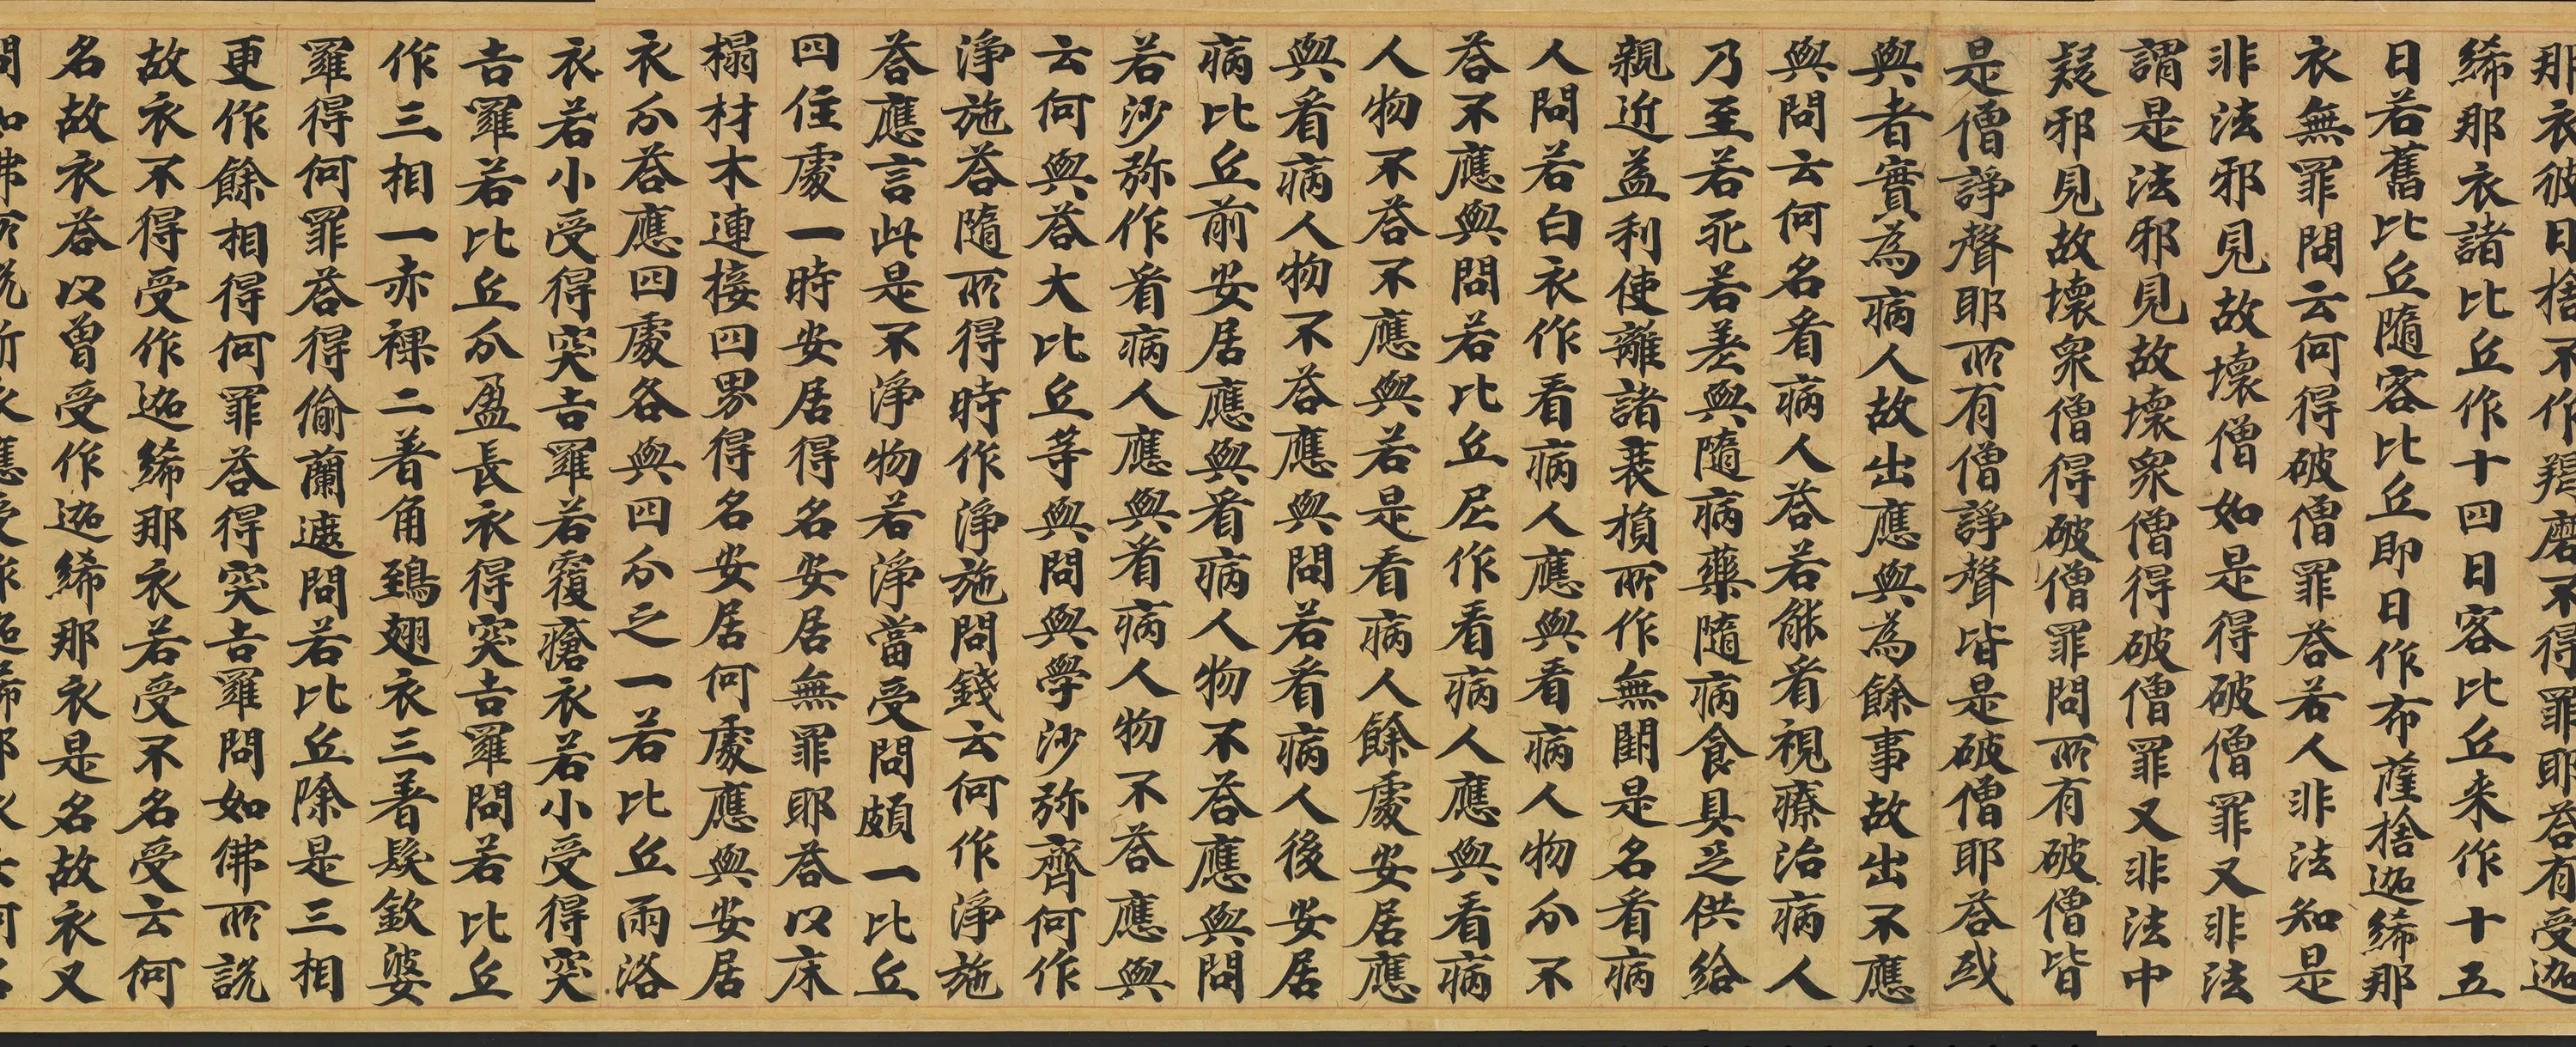 那衣彼日捨不作羯磨不得罪耶荅有受迦
絺那衣諸比丘作十四日客比丘来作十五
日若舊比丘隨客比丘即日作布薩捨迦絺那
衣無罪問云何得破僧罪荅若人非法知是
非法邪見故壞僧如是得破僧罪又非法
謂是法邪見故壞衆僧得破僧罪又非法中
疑邪見故壞衆僧得破僧罪問所有破僧皆
是僧諍聲耶所有僧諍聲皆是破僧耶荅或
與者實為病人故出應與為餘事故出不應
與問云何名看病人荅若能看視療治病人
乃至若死若差與隨病藥隨病食具足供給
親近益利使離諸衰損所作無關是名看病
人問若白衣作看病人應與看病人物分不
荅不應與問若比丘尼作看病人應與看病
人物不荅不應與若是看病人餘處安居應
與看病人物不荅應與問若看病人後安居
病比丘前安居應與看病人物不荅應與問
若沙弥作看病人應與看病人物不荅應與
云何與荅大比丘等與問與學沙弥齊何作
淨施荅隨所得時作淨施問錢云何作淨施
荅應言此是不淨物若淨當受問頗一比丘
四住處一時安居得名安居無罪耶荅以床
榻材木連接四男得名安居何處應與安居
衣分荅應四處各與四分之一若比丘雨浴
衣若小受得突吉羅若覆瘡衣若小受得突
吉羅若比丘分盈長衣得突吉羅問若比丘
作三相一赤裸二著角鵄翅衣三著髮欽婆
羅得何罪荅得偷蘭遮問若比丘除是三相
更作餘相得何罪荅得突吉羅問如佛所說
故衣不得受作迦絺那衣若受不名受云何
名故衣荅以曾受作迦絺那衣是名故衣又